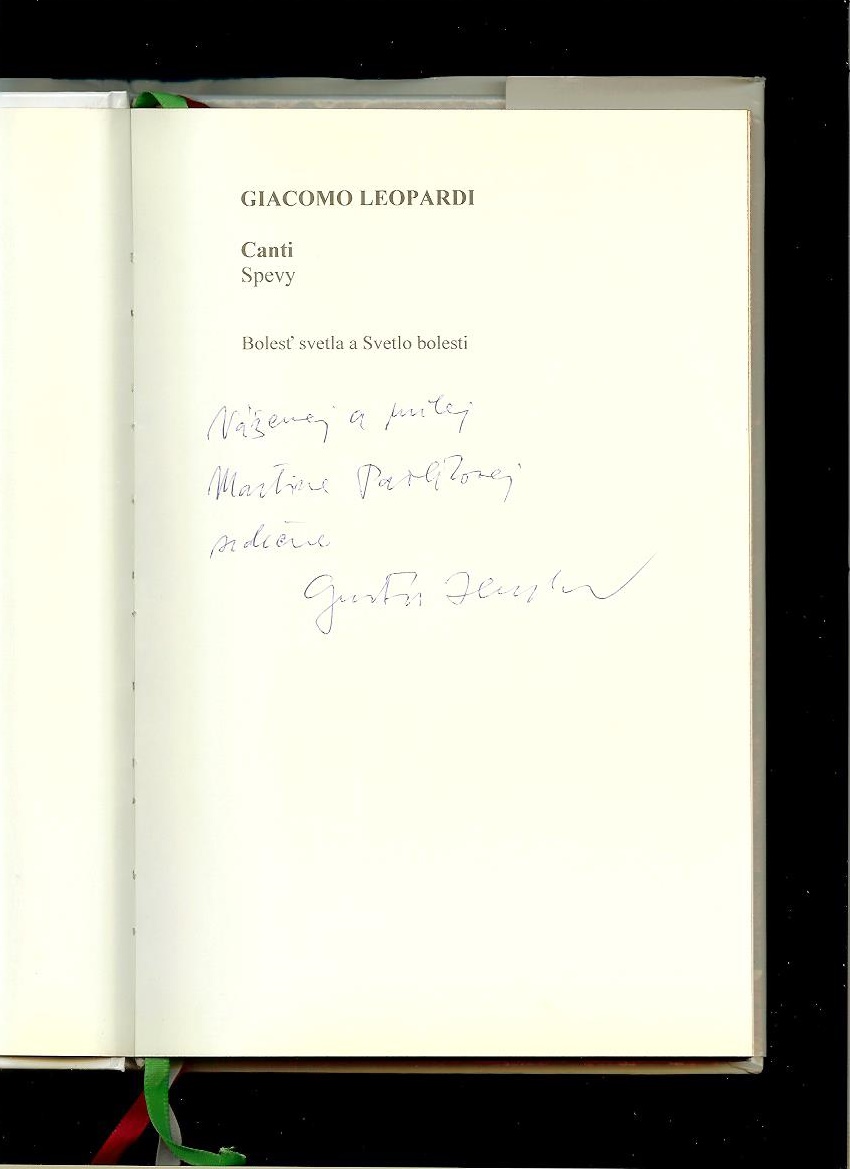 GIACOMO LEOPARDI
Canti
Spevy
Bolesť svetla a Svetlo bolesti
Váženej a milej
Martine
srdečne